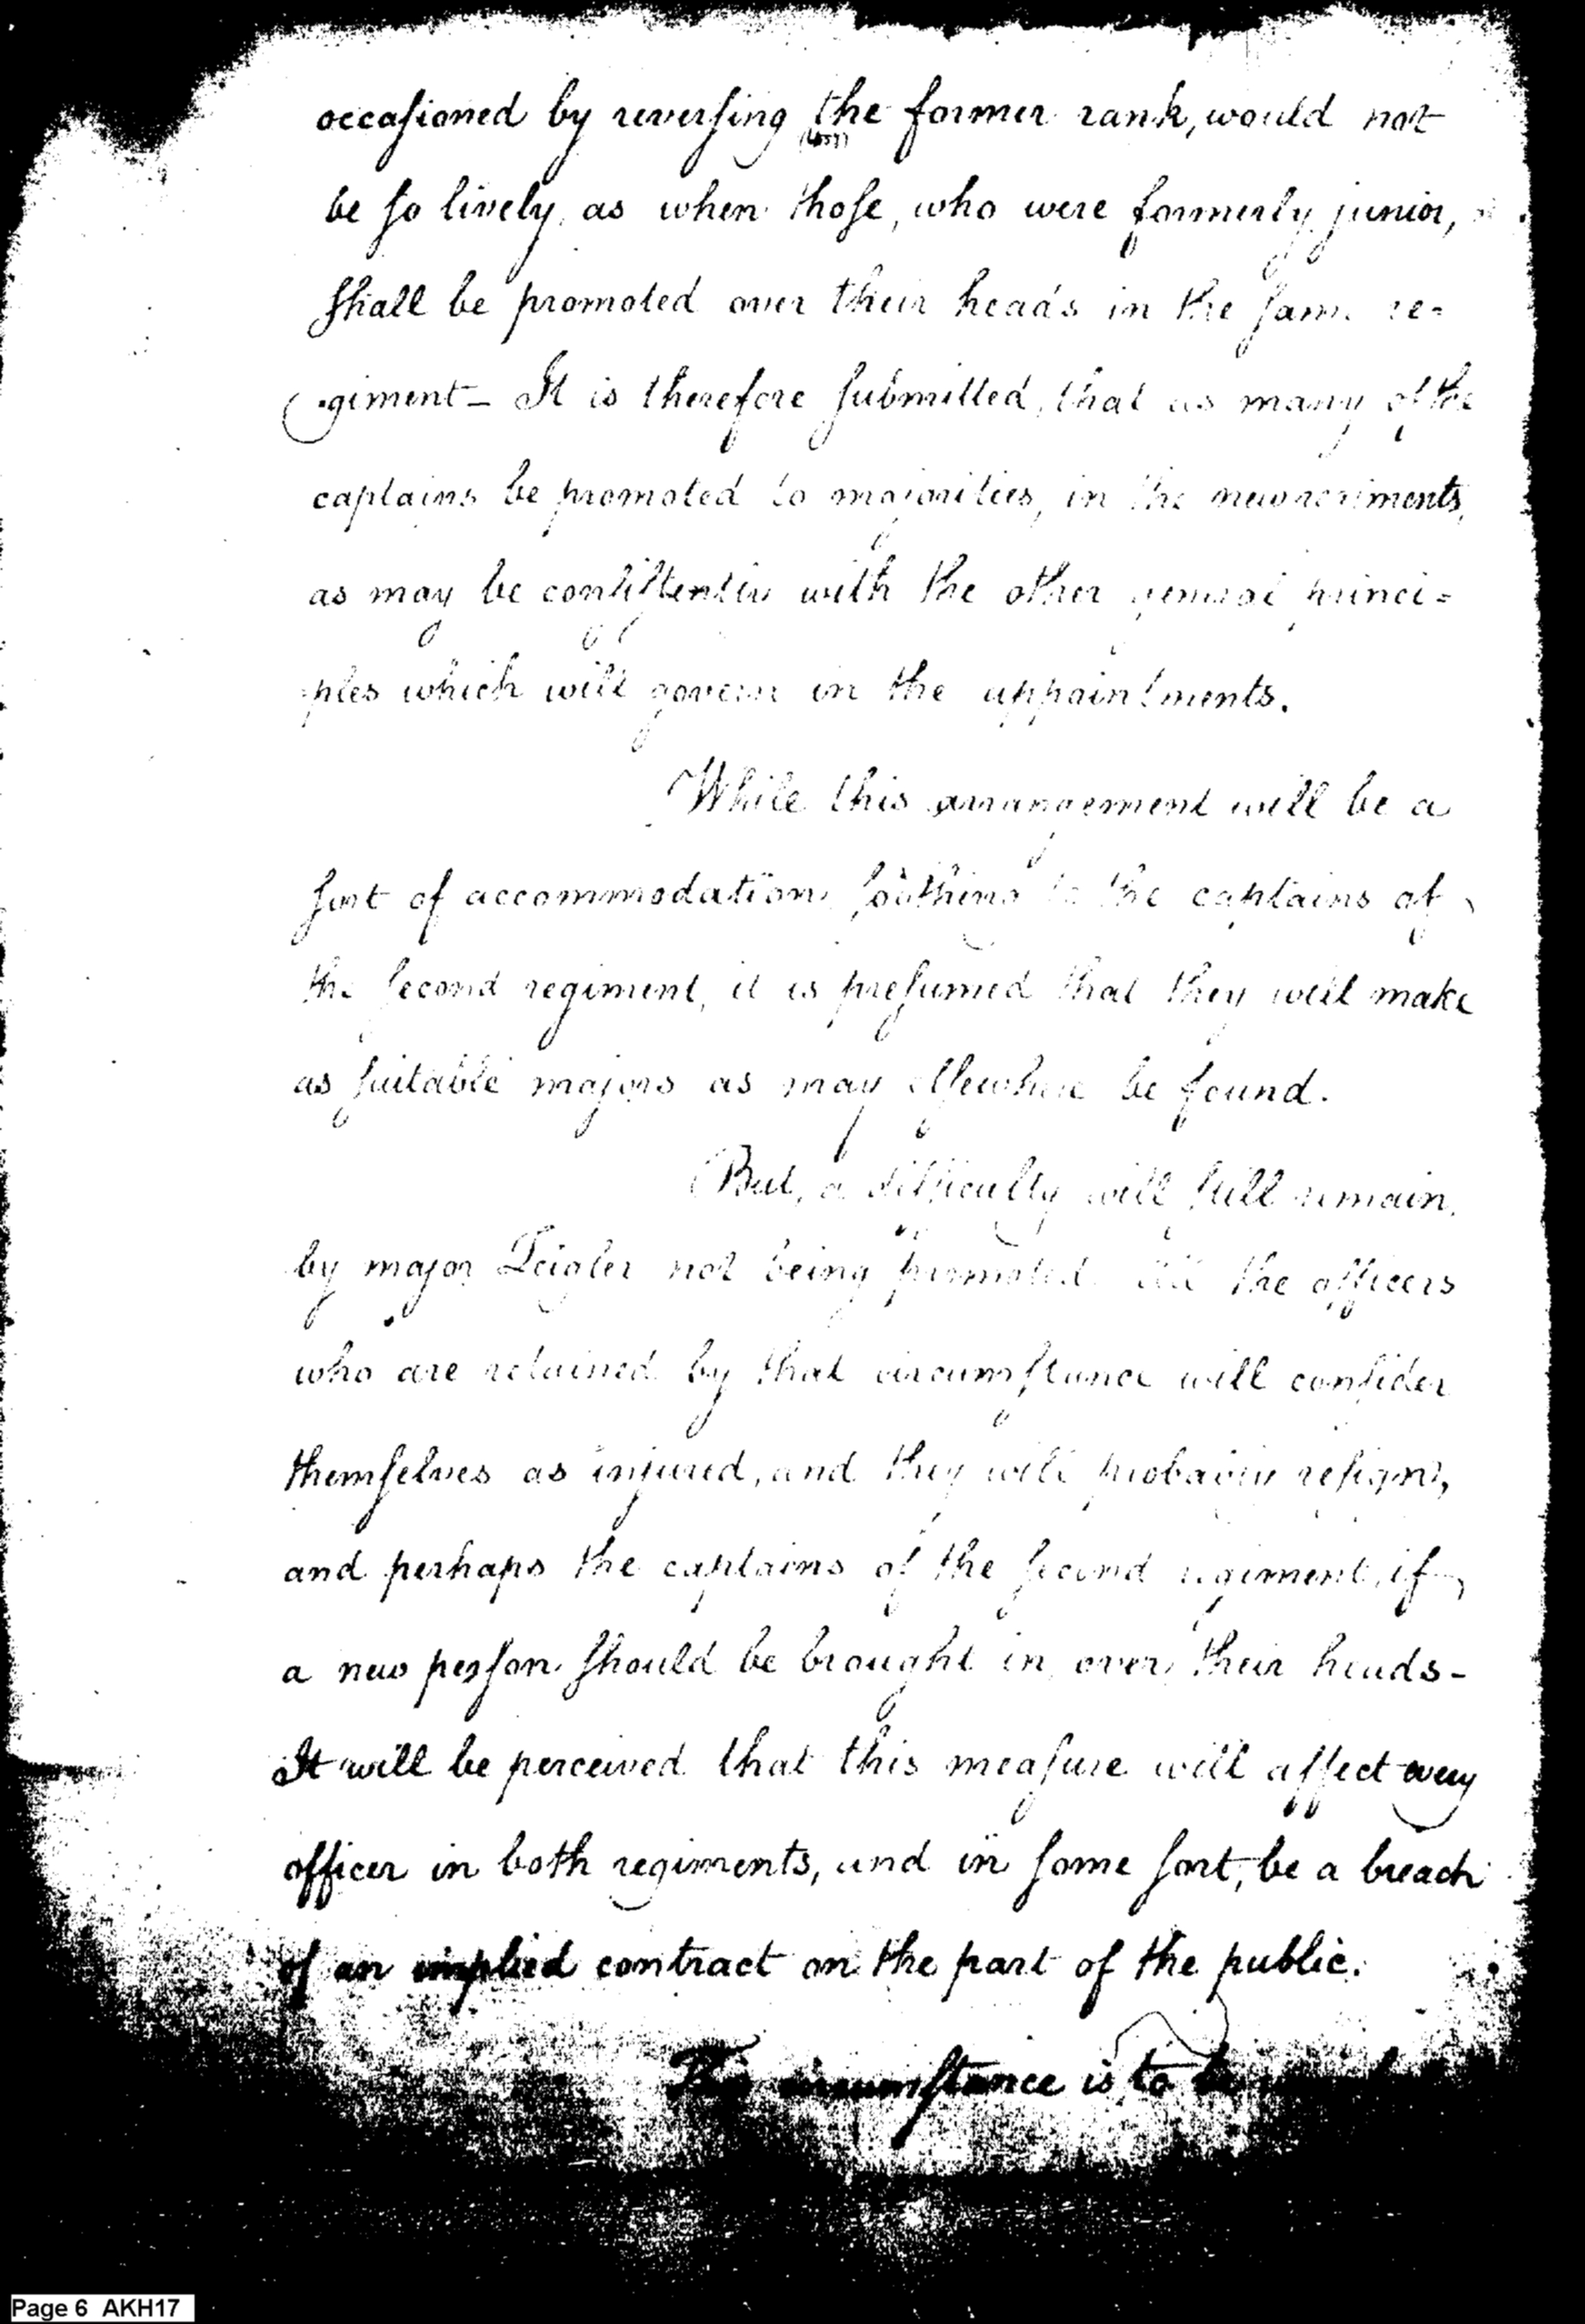 occaſioned by reverſing the former rank, would not
be ſo lively, as when thoſe, who were formerly junior,
ſhall be promoted over their heads in the ſame re=
=giment – It is therefore ſubmitted, that as many of the
captains be promoted to majorities, in the new regiments,
as may be conſiſtently with the other general princi=
=ples which will govern in the appointments.
While this arrangement will be a
ſort of accommodation ſoothing to the captains of
the ſecond regiment, it is preſumed that they will make
as ſuitable majors as may elſewhere be found.
But, a difficulty will ſtill remain,
by major Zeigler not being promoted. All the officers
who are retained by that circumſtance will conſider
themſelves as injured, and they will probably reſign,
and perhaps the captains of the ſecond regiment, if
a new perſon ſhould be brought in over their heads –
It will be perceived that this meaſure will affect every
officer in both regiments, and in ſome ſort, be a breach
of an implied contract on the part of the public.
This circumſtance is to be
Page 6 AKH17